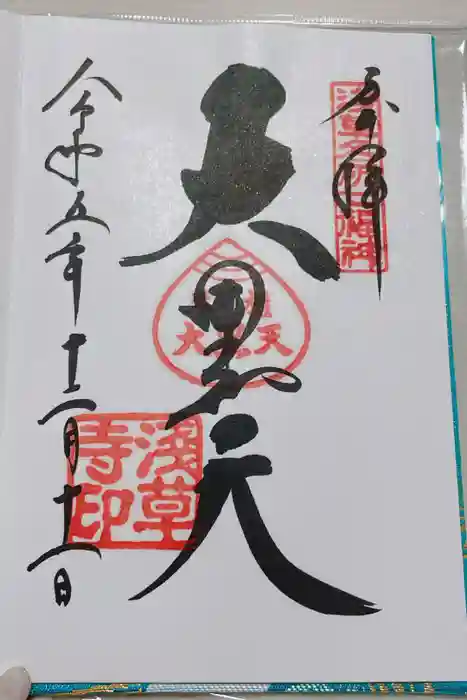 奉拝
浅草名所七福神
大黒天
令和五年十二月十一日
浅草寺印